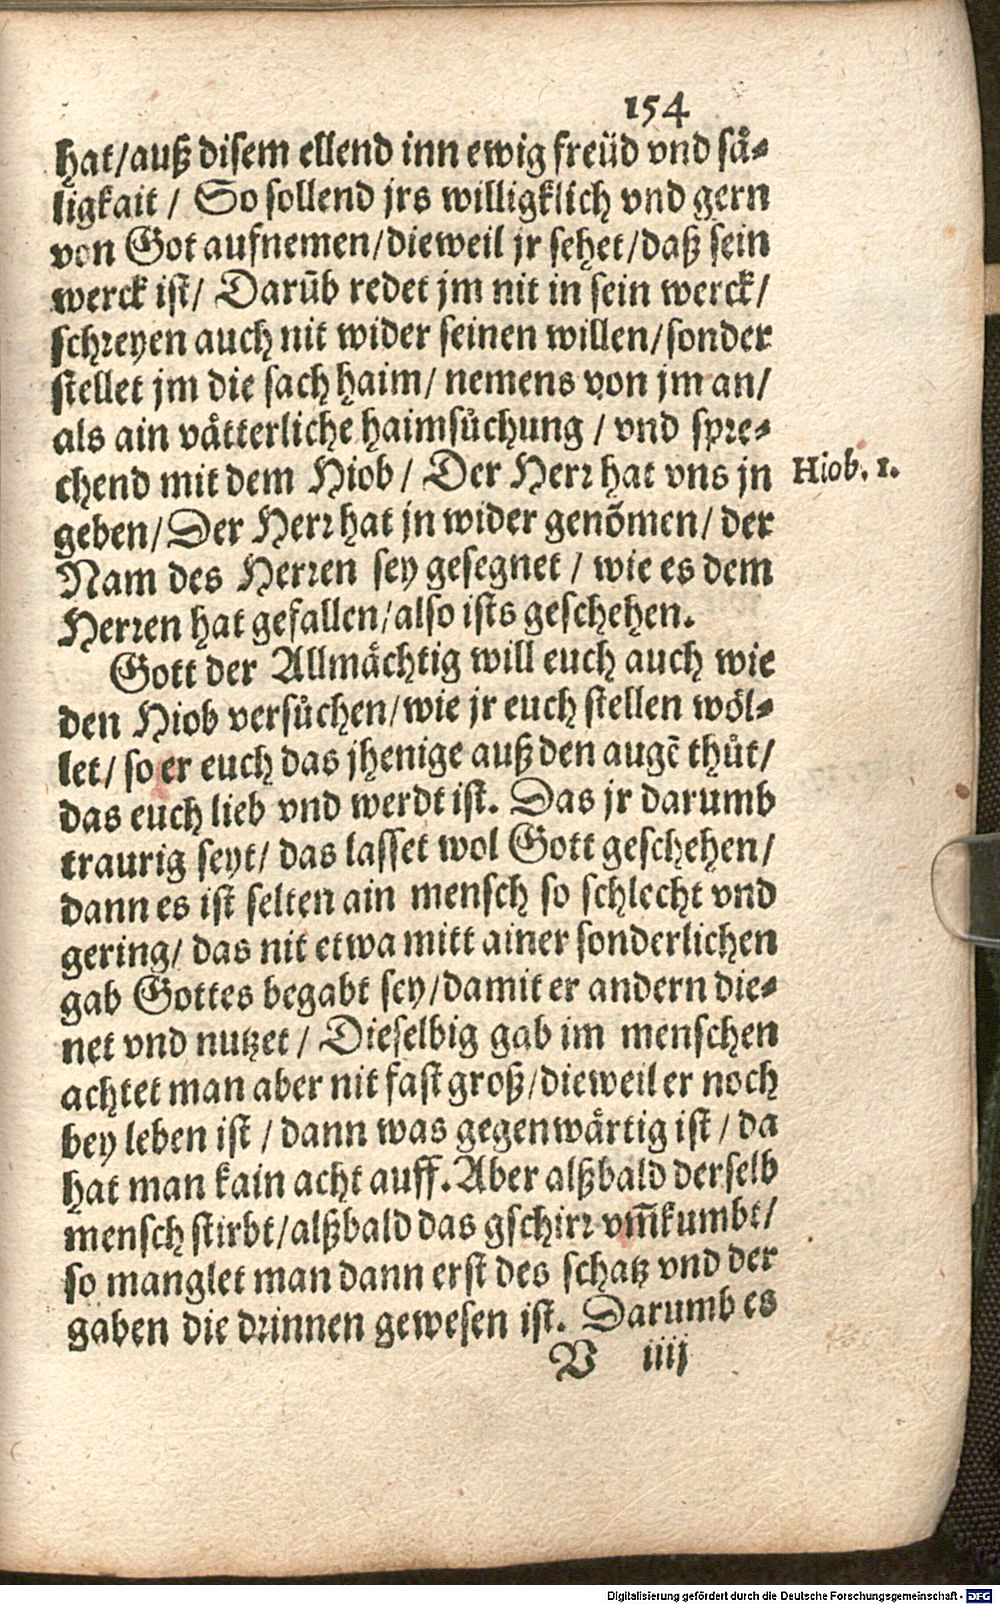 154
hat/auß disem ellend inn ewig freüd vnd så⸗
ligkait / So sollend jrs willigklich vnd gern
von Got aufnemen/dieweil jr sehet/daß sein
werck ist/ Darūb redet jm nit in sein werck/
schreyen auch nit wider seinen willen/sonder
stellet jm die sach haim/ nemens von jm an/
als ain våtterliche haimsůchung / vnd spre⸗
chend mit dem Hiob / Der Herr hat vns jn
Hiob. 1.
geben/Der Herr hat jn wider genõmen/ der
Nam des Herren sey gesegnet / wie es dem
Herren hat gefallen/also ists geschehen.
Gott der Allmåchtig will euch auch wie
den Hiob versůchen/wie jr euch stellen wöl⸗
let/ so er euch das jhenige auß den augẽ thůt/
das euch lieb vnd werdt ist. Das jr darumb
traurig seyt/ das lasset wol Gott geschehen/
dann es ist selten ain mensch so schlecht vnd
gering/ das nit etwa mitt ainer sonderlichen
gab Gottes begabt sey/damit er andern die⸗
net vnd nutzet / Dieselbig gab im menschen
achtet man aber nit fast groß/dieweil er noch
bey leben ist / dann was gegenwårtig ist / da
hat man kain acht auff. Aber alßbald derselb
mensch stirbt/alßbald das gschirr vm̃kumbt/
so manglet man dann erst des schatz vnd der
gaben die drinnen gewesen ist. Darumb es
V iiij
Digitalisierung gefördert durch die Deutsche Forschungsgemeinschaft - DFG